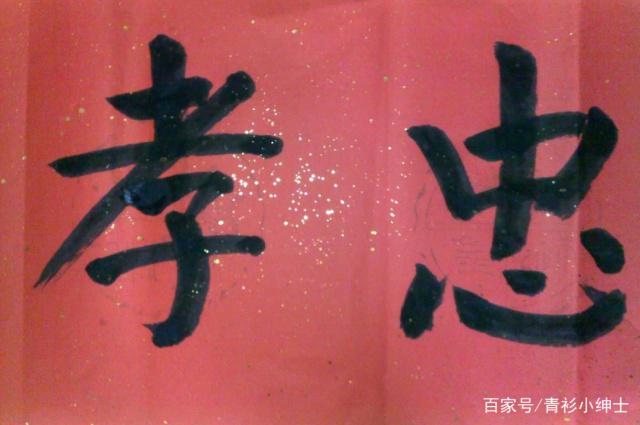 忠孝
百家号/青衫小绅士